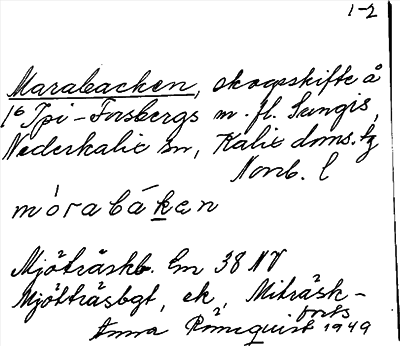 1-2
Marabacken, skogsskifte å
16 Ipi-Forsbergs m. fl. Sangis,
Nederkalix sn, Kalix doms. tg
Norrb. l
mòrabákan
Mjöträskb. Em 38 NV
Mjöträsbgt, ek, Miträsk-
torts
Anna Rönnquist 1949